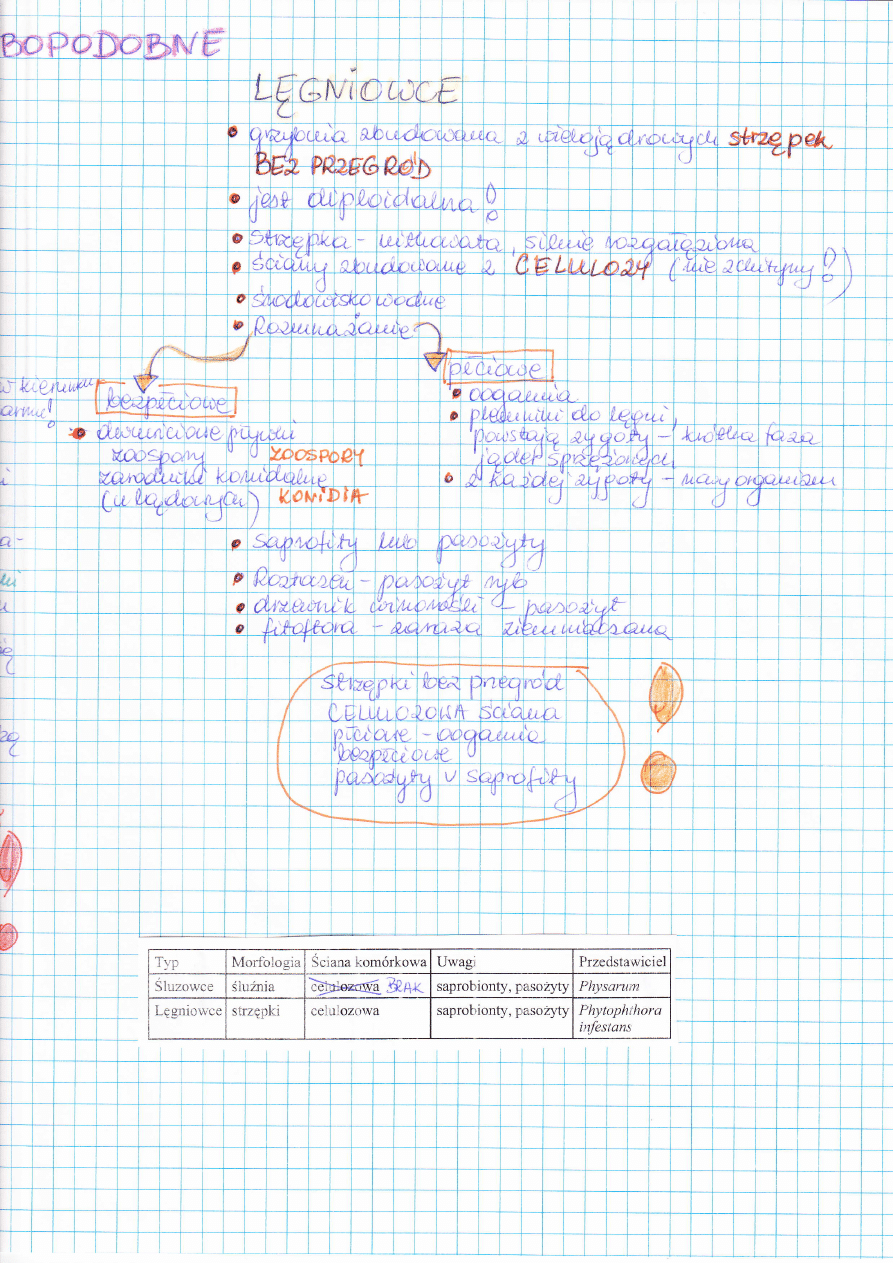 BOPODOBNE
LĘGNIOWCE
• grzybnia zbudowana z wielojądrowych strzępek
BEZ PRZEGRÓD
• jest diploidalna!
• strzępka - nitkowata, silnie rozgałęziona
• ściany zbudowane z CELULOZY (nie z chityny!)
• środowisko wodne
• Rozmnażanie
płciowe
w kierunku
bezpłciowe
• oogamia
• plemniki do lęgni,
• dwuwiciowe pływki
powstają zygoty - krótka faza
zoospory ZOOSPORY
jąder sprzężonych
zarodniki konidialne
• z każdej zygoty - nowy organizm
(u lądowych) KONIDIA
• saprofity lub pasożyty
• Roztoczeń - pasożyt ryb
• drzewnik - pasożyt
• fitoftora - zaraza ziemniaczana
strzępki bez przegród
CELULOZOWA ściana
płciowe - oogamia
bezpłciowe
pasożyty v saprofity
Typ Morfologia Ściana komórkowa Uwagi Przedstawiciel
Śluzowce śluźnia celulozowa BRAK saprobionty, pasożyty Physarum
Lęgniowce strzępki celulozowa saprobionty, pasożyty Phytophthora
infestans